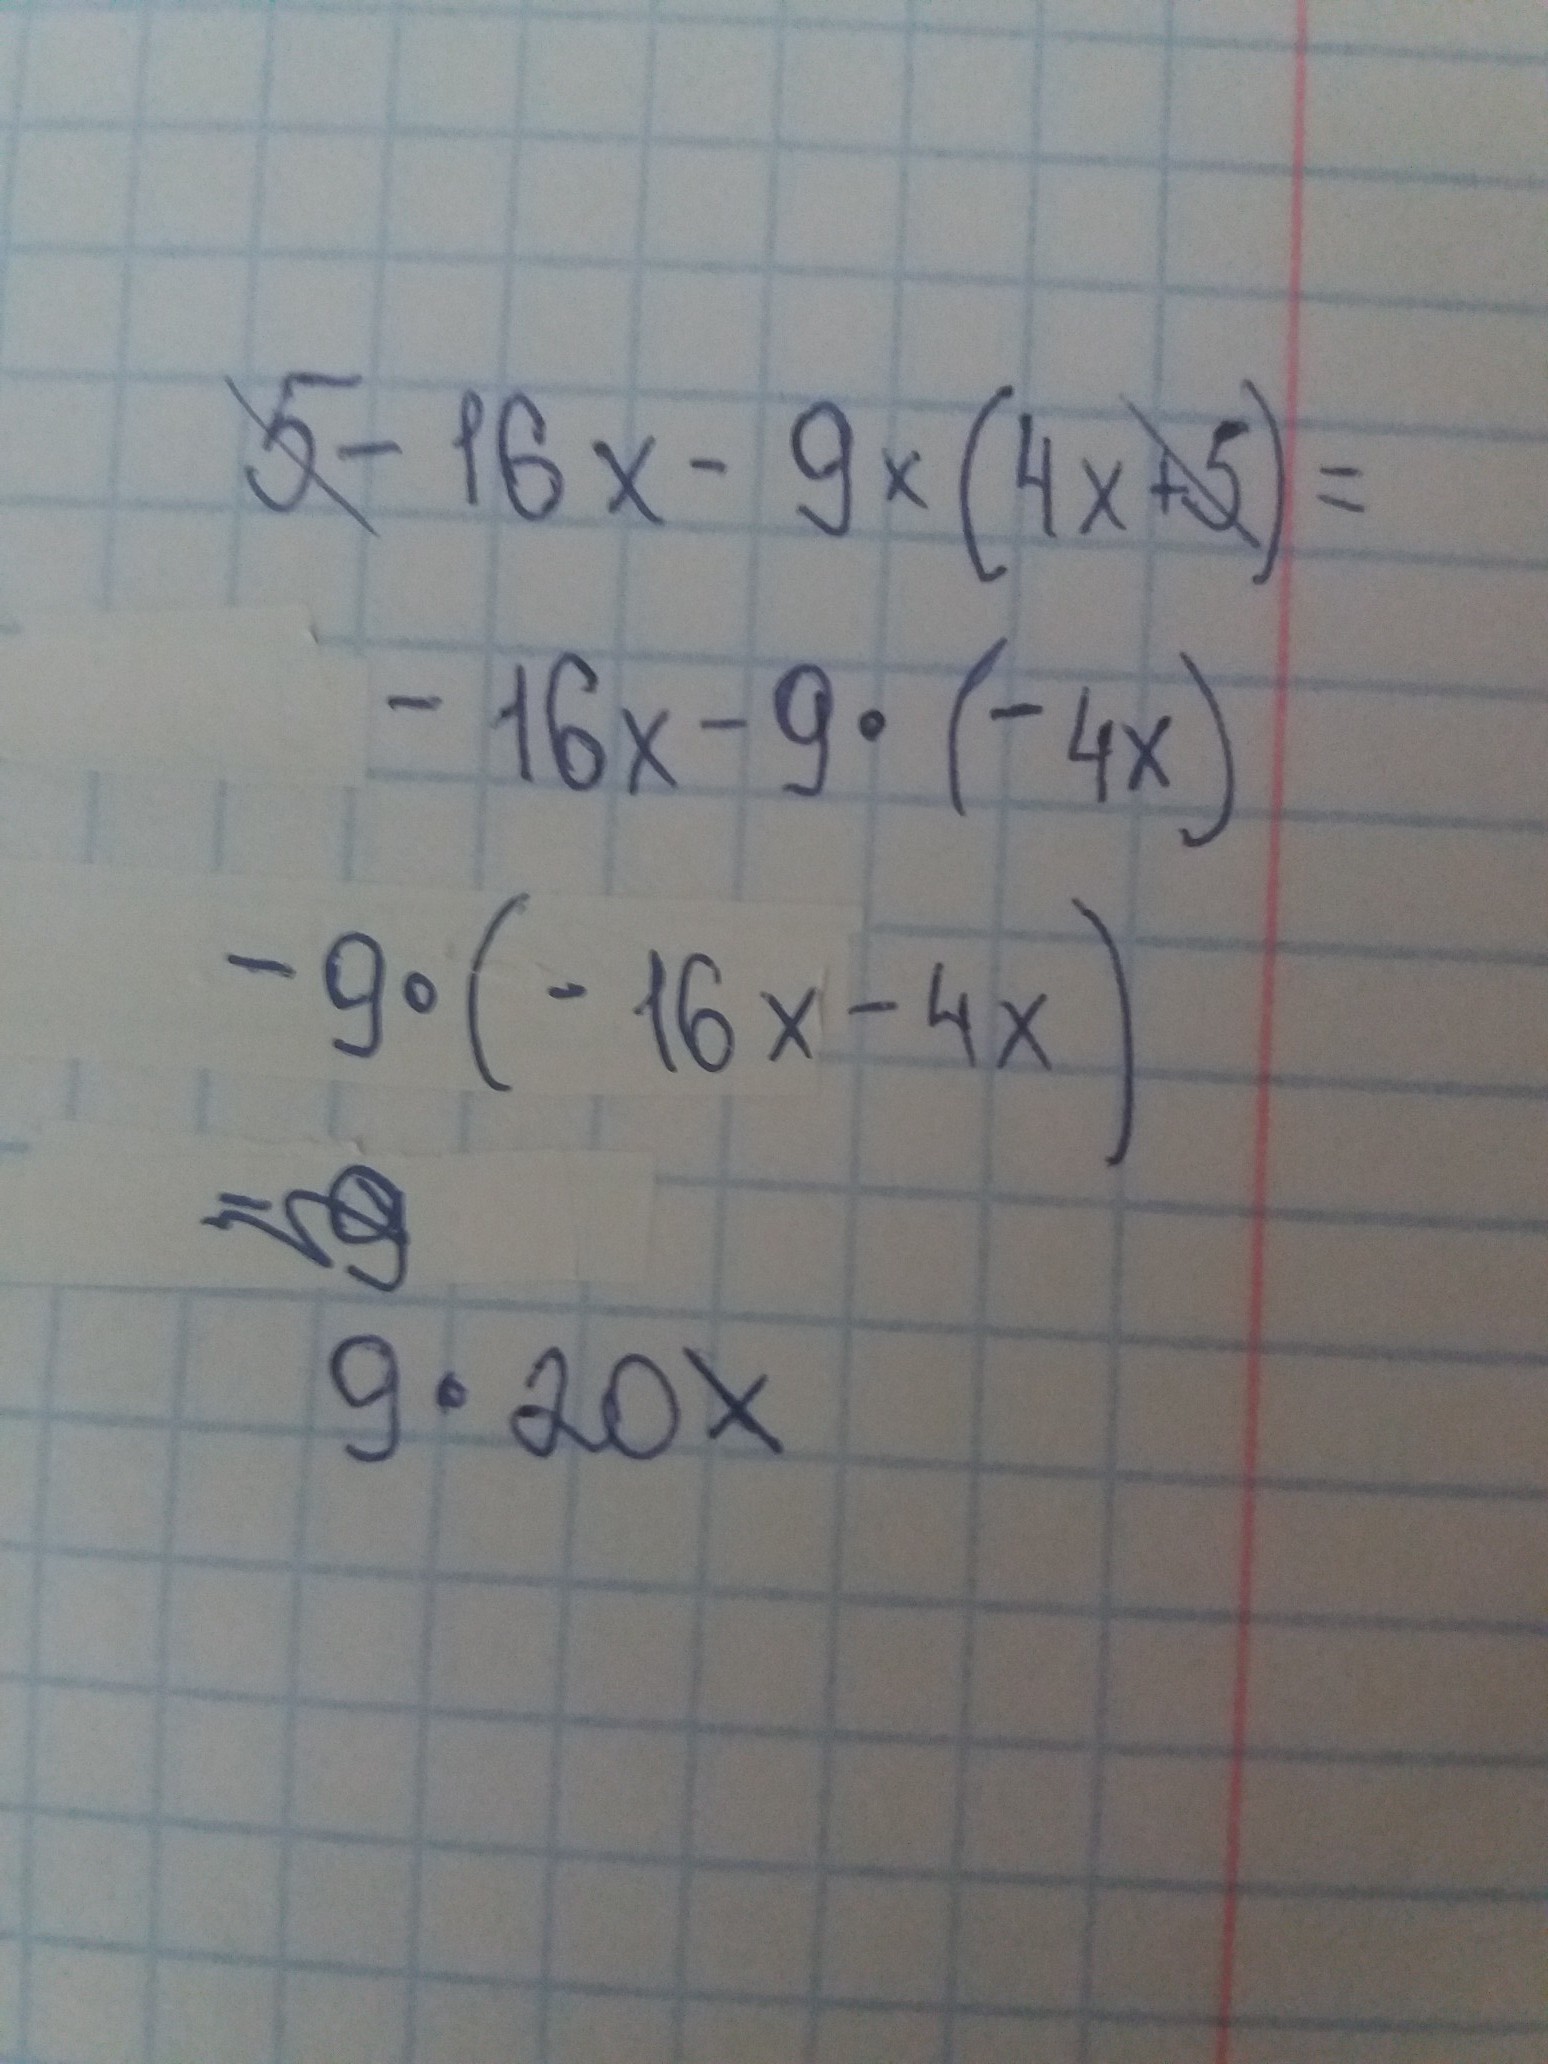 5 - 16x - 9x(4x+5)=
- 16x - 9·(-4x)
- 9·(- 16x - 4x)
9·20x